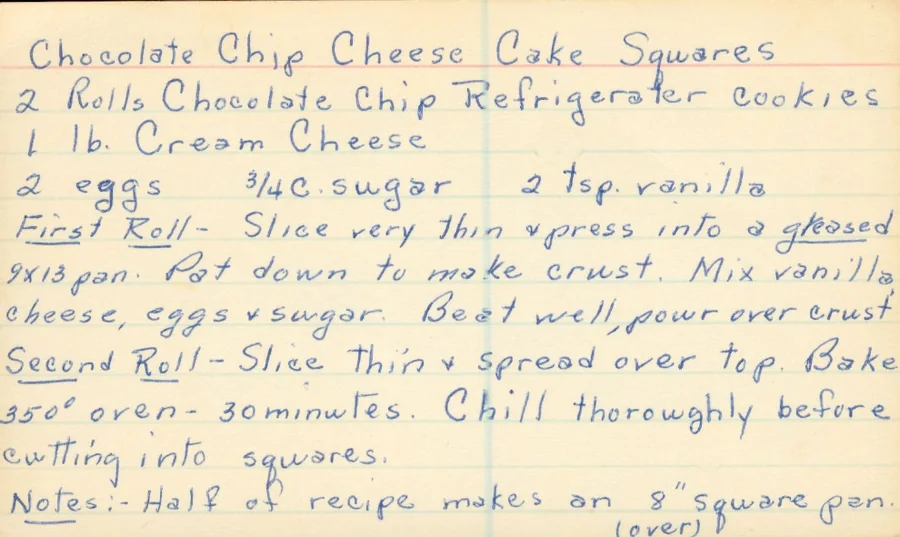 Chocolate Chip Cheese Cake Squares
2 Rolls Chocolate Chip Refrigerater cookies
1 lb. Cream Cheese
2 eggs 3/4 C. sugar 2 tsp. vanilla
First Roll - Slice very thin & press into a greased
9x13 pan. Pat down to make crust. Mix vanilla,
cheese, eggs & sugar. Beat well, pour over crust
Second Roll - Slice thin & spread over top. Bake
350° oven - 30 minutes. Chill thoroughly before
cutting into squares.
Notes:- Half of recipe makes an 8" square pan.
(over)